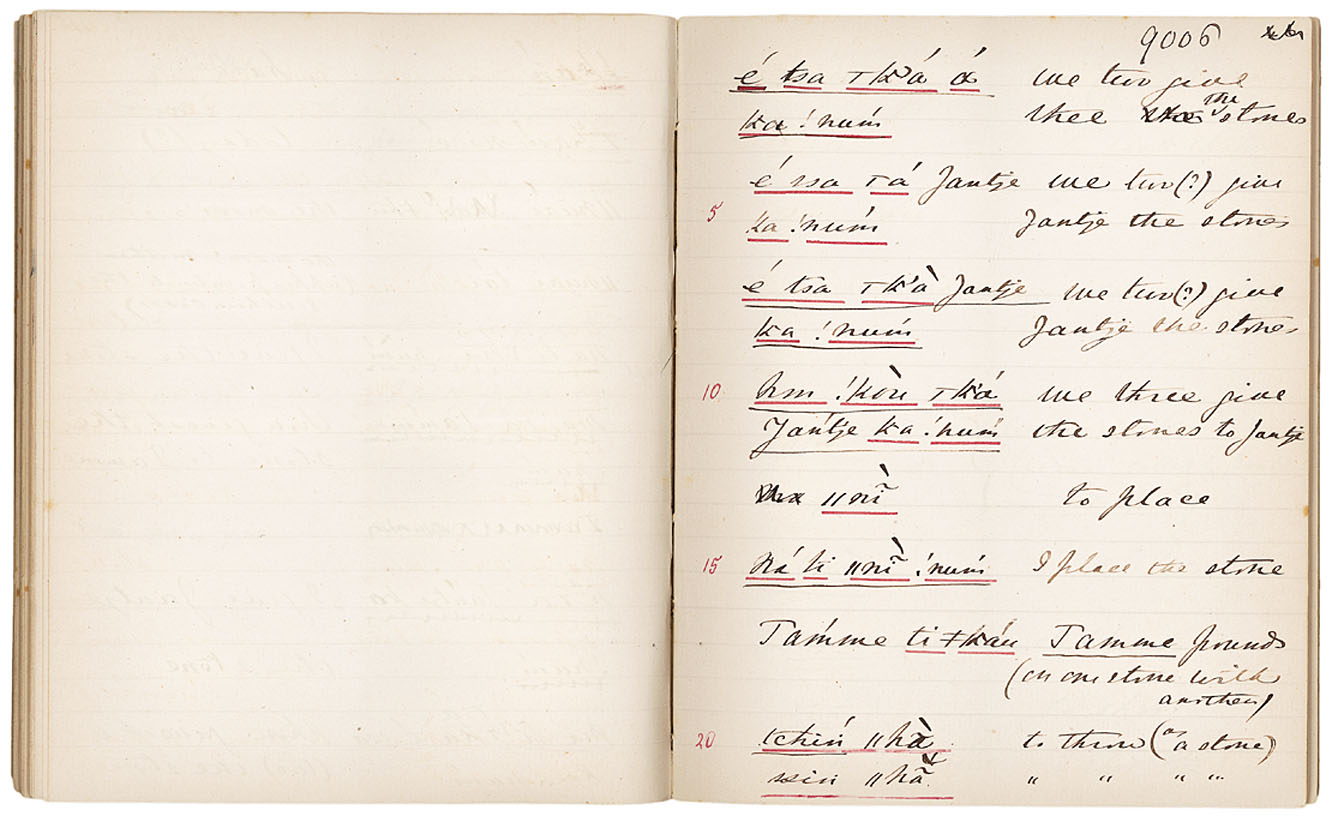 9006
é tsa ꞇkʼá á we two give
ka !nuḿ thee the stones
é ssa ꞇá Jantje we two (?) give
5 ka !nuḿ Jantje the stones
é tsa ꞇkʼà Jantje we two (?) give
ka !nuḿ Jantje the stones
10 hm !kòu ꞇkʼá we three give
Jántje ka !nuḿ the stones to Jantje
ǁnı̃̀ to place
15 ká ti ǁnı̃̀ !nuḿ I place the stone
Tamḿe ti ǂkáu Tamme pounds
(on one stone with
another)
20 tchiń ǁhà to throw (as a stone)
ssin ǁhã " " " "